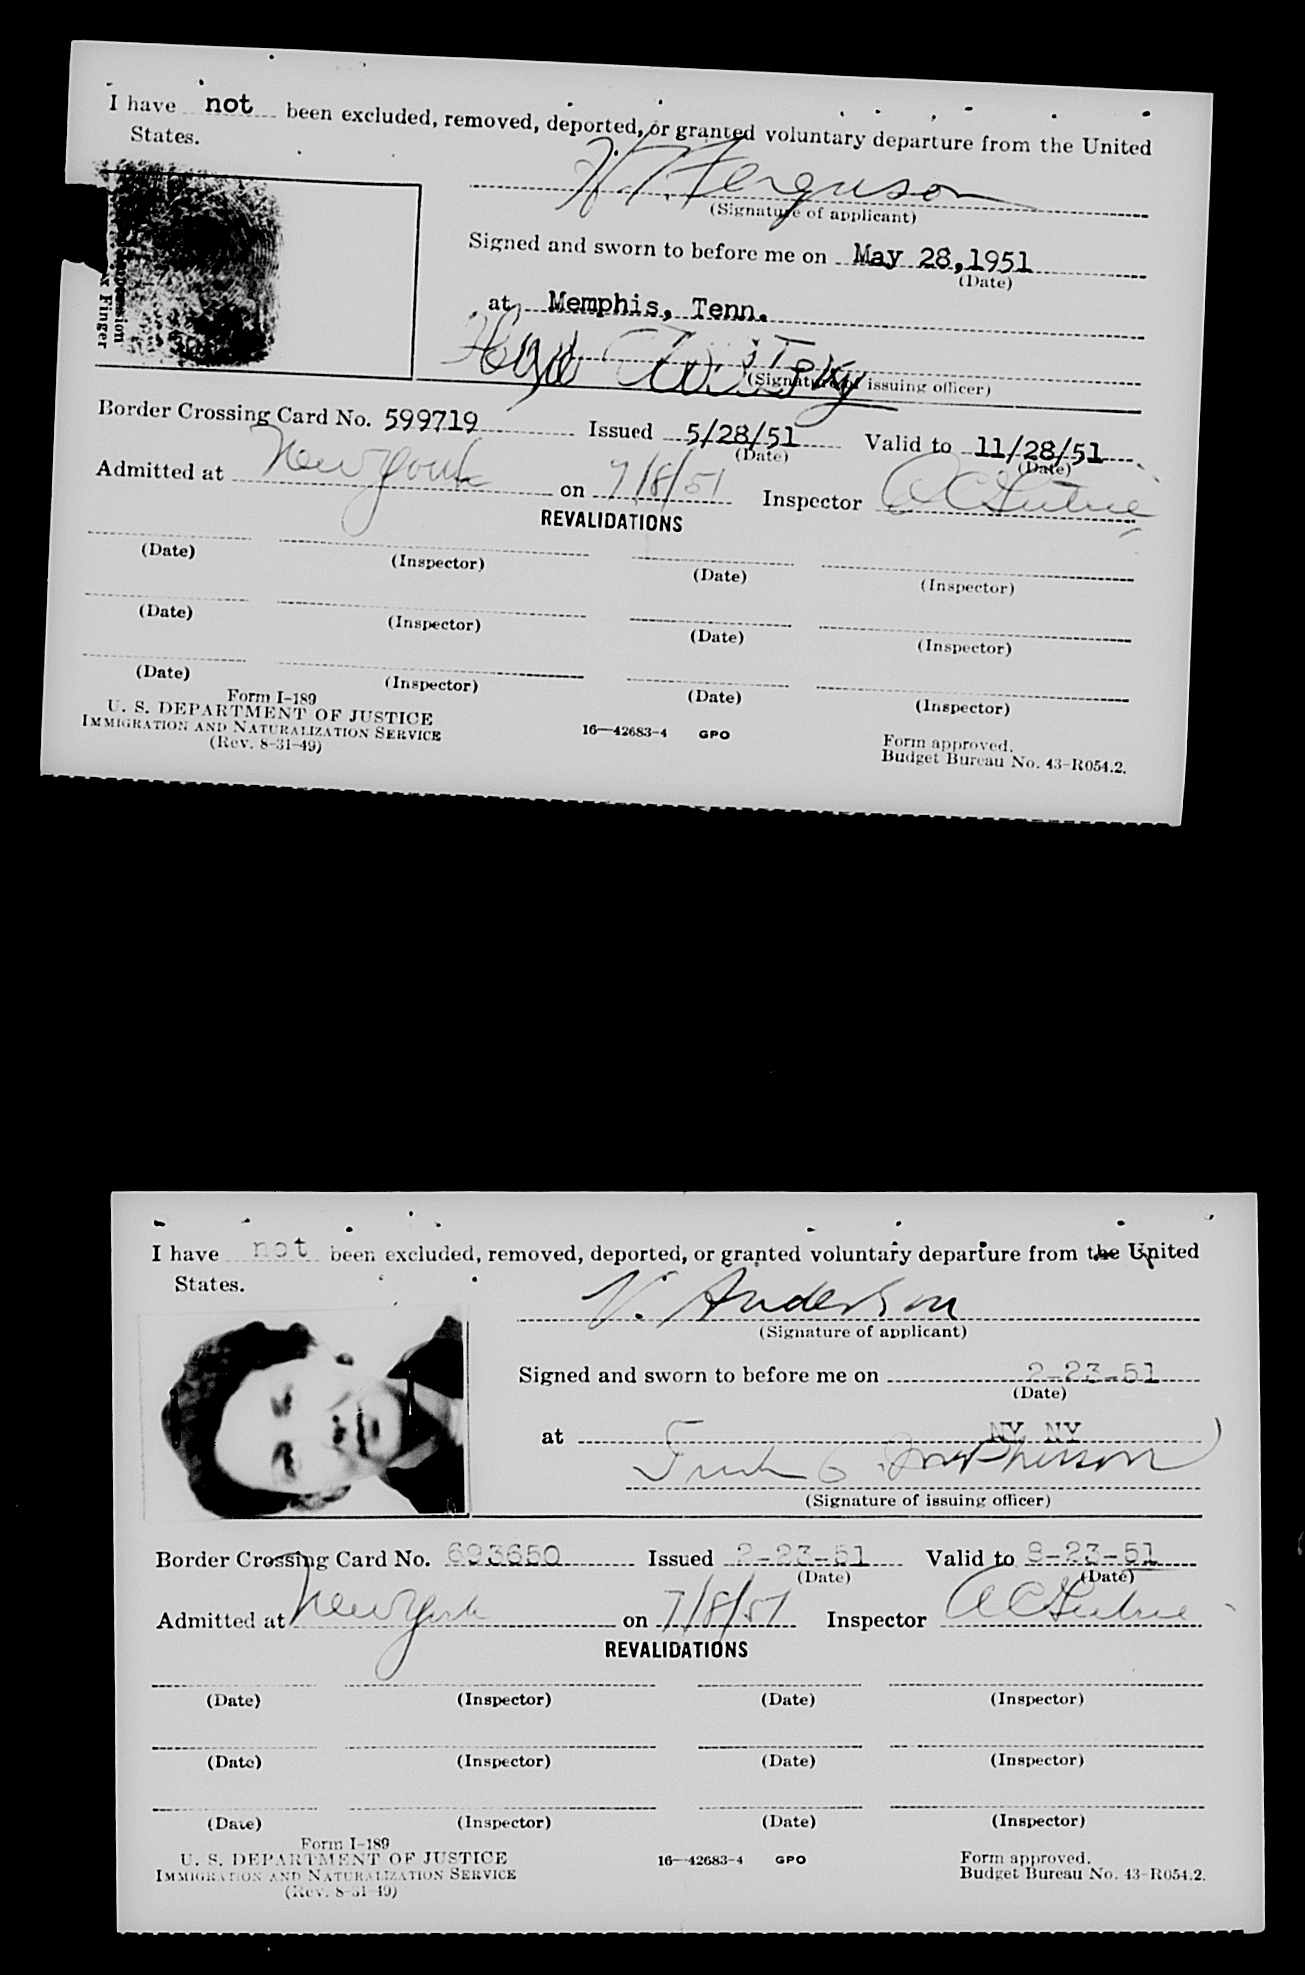 I have not been excluded, removed, deported, or granted voluntary departure from the United
States.
H. T. Ferguson
(Signature of applicant)
Signed and sworn to before me on May 28,1951
(Date)
at Memphis, Tenn.
(Signature of issuing officer)
Finger
Border Crossing Card No. 599719 Issued 5/28/51 Valid to 11/28/51
(Date) (Date)
Admitted at New York on 7/8/51 Inspector
REVALIDATIONS
(Date) (Inspector) (Date) (Inspector)
(Date) (Inspector) (Date) (Inspector)
(Date) (Inspector) (Date) (Inspector)
Form I-189
U. S. DEPARTMENT OF JUSTICE
IMMIGRATION AND NATURALIZATION SERVICE
(Rev. 8-31-49)
16—42683-4 GPO
Form approved.
Budget Bureau No. 43-R054.2.
I have not been excluded, removed, deported, or granted voluntary departure from the United
States.
V. Anderson
(Signature of applicant)
Signed and sworn to before me on 2-23-51
(Date)
at NY NY
(Signature of issuing officer)
Border Crossing Card No. 693650 Issued 2-23-51 Valid to 8-23-51
(Date) (Date)
Admitted at New York on 7/8/51 Inspector
REVALIDATIONS
(Date) (Inspector) (Date) (Inspector)
(Date) (Inspector) (Date) (Inspector)
(Date) (Inspector) (Date) (Inspector)
Form I-189
U. S. DEPARTMENT OF JUSTICE
IMMIGRATION AND NATURALIZATION SERVICE
(Rev. 8-31-49)
16—42683-4 GPO
Form approved.
Budget Bureau No. 43-R054.2.